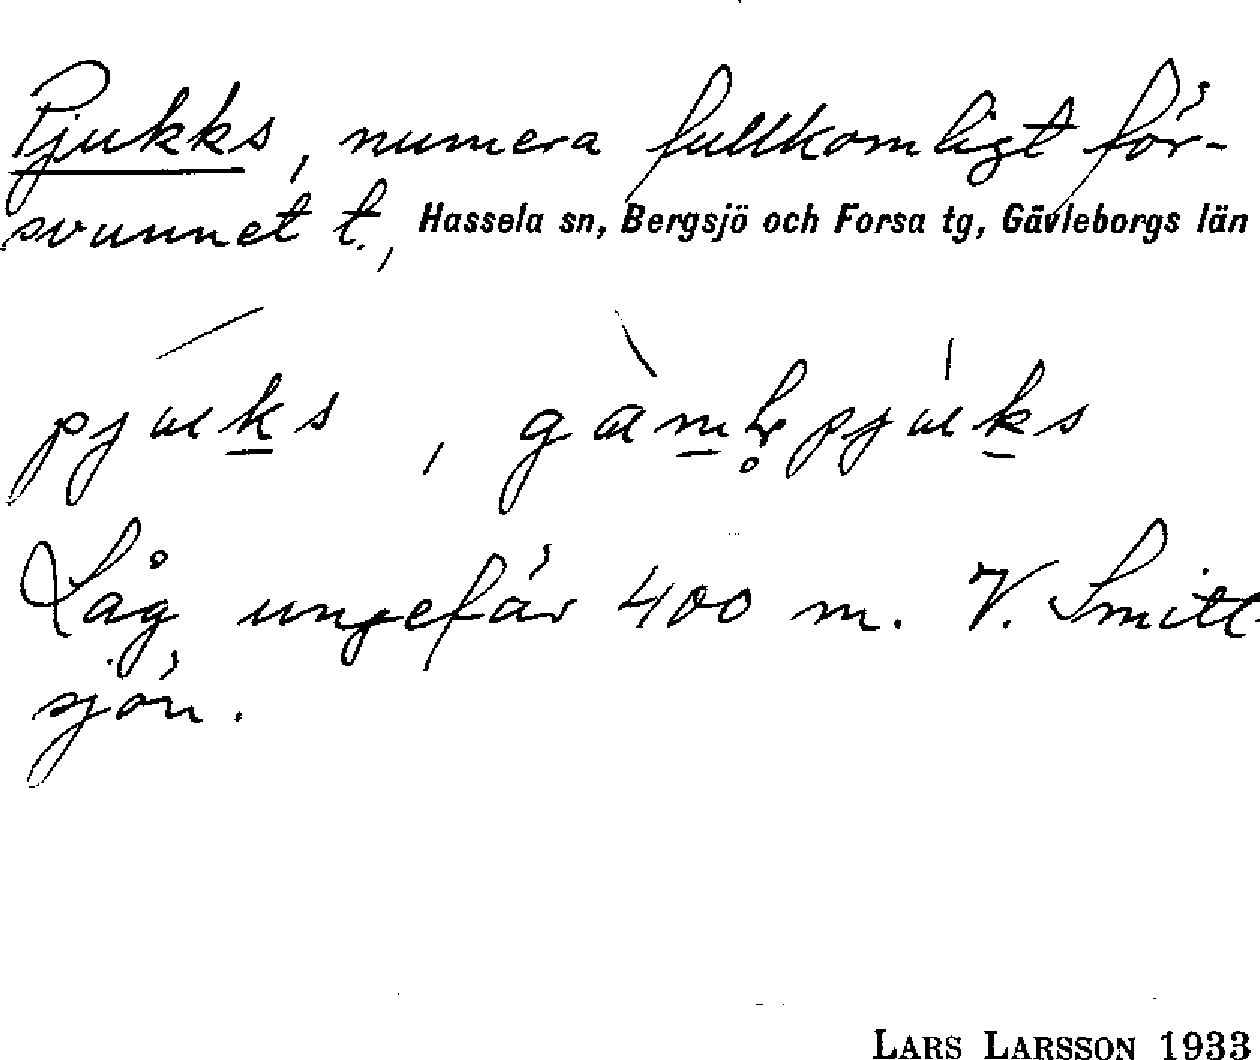 Pjukks, numera fullkomligt för-
svunnet t., Hassela sn, Bergsjö och Forsa tg, Gävleborgs län
Låg ungefär 400 m. V. Smitt-
sjön.
LARS LARSSON 1933